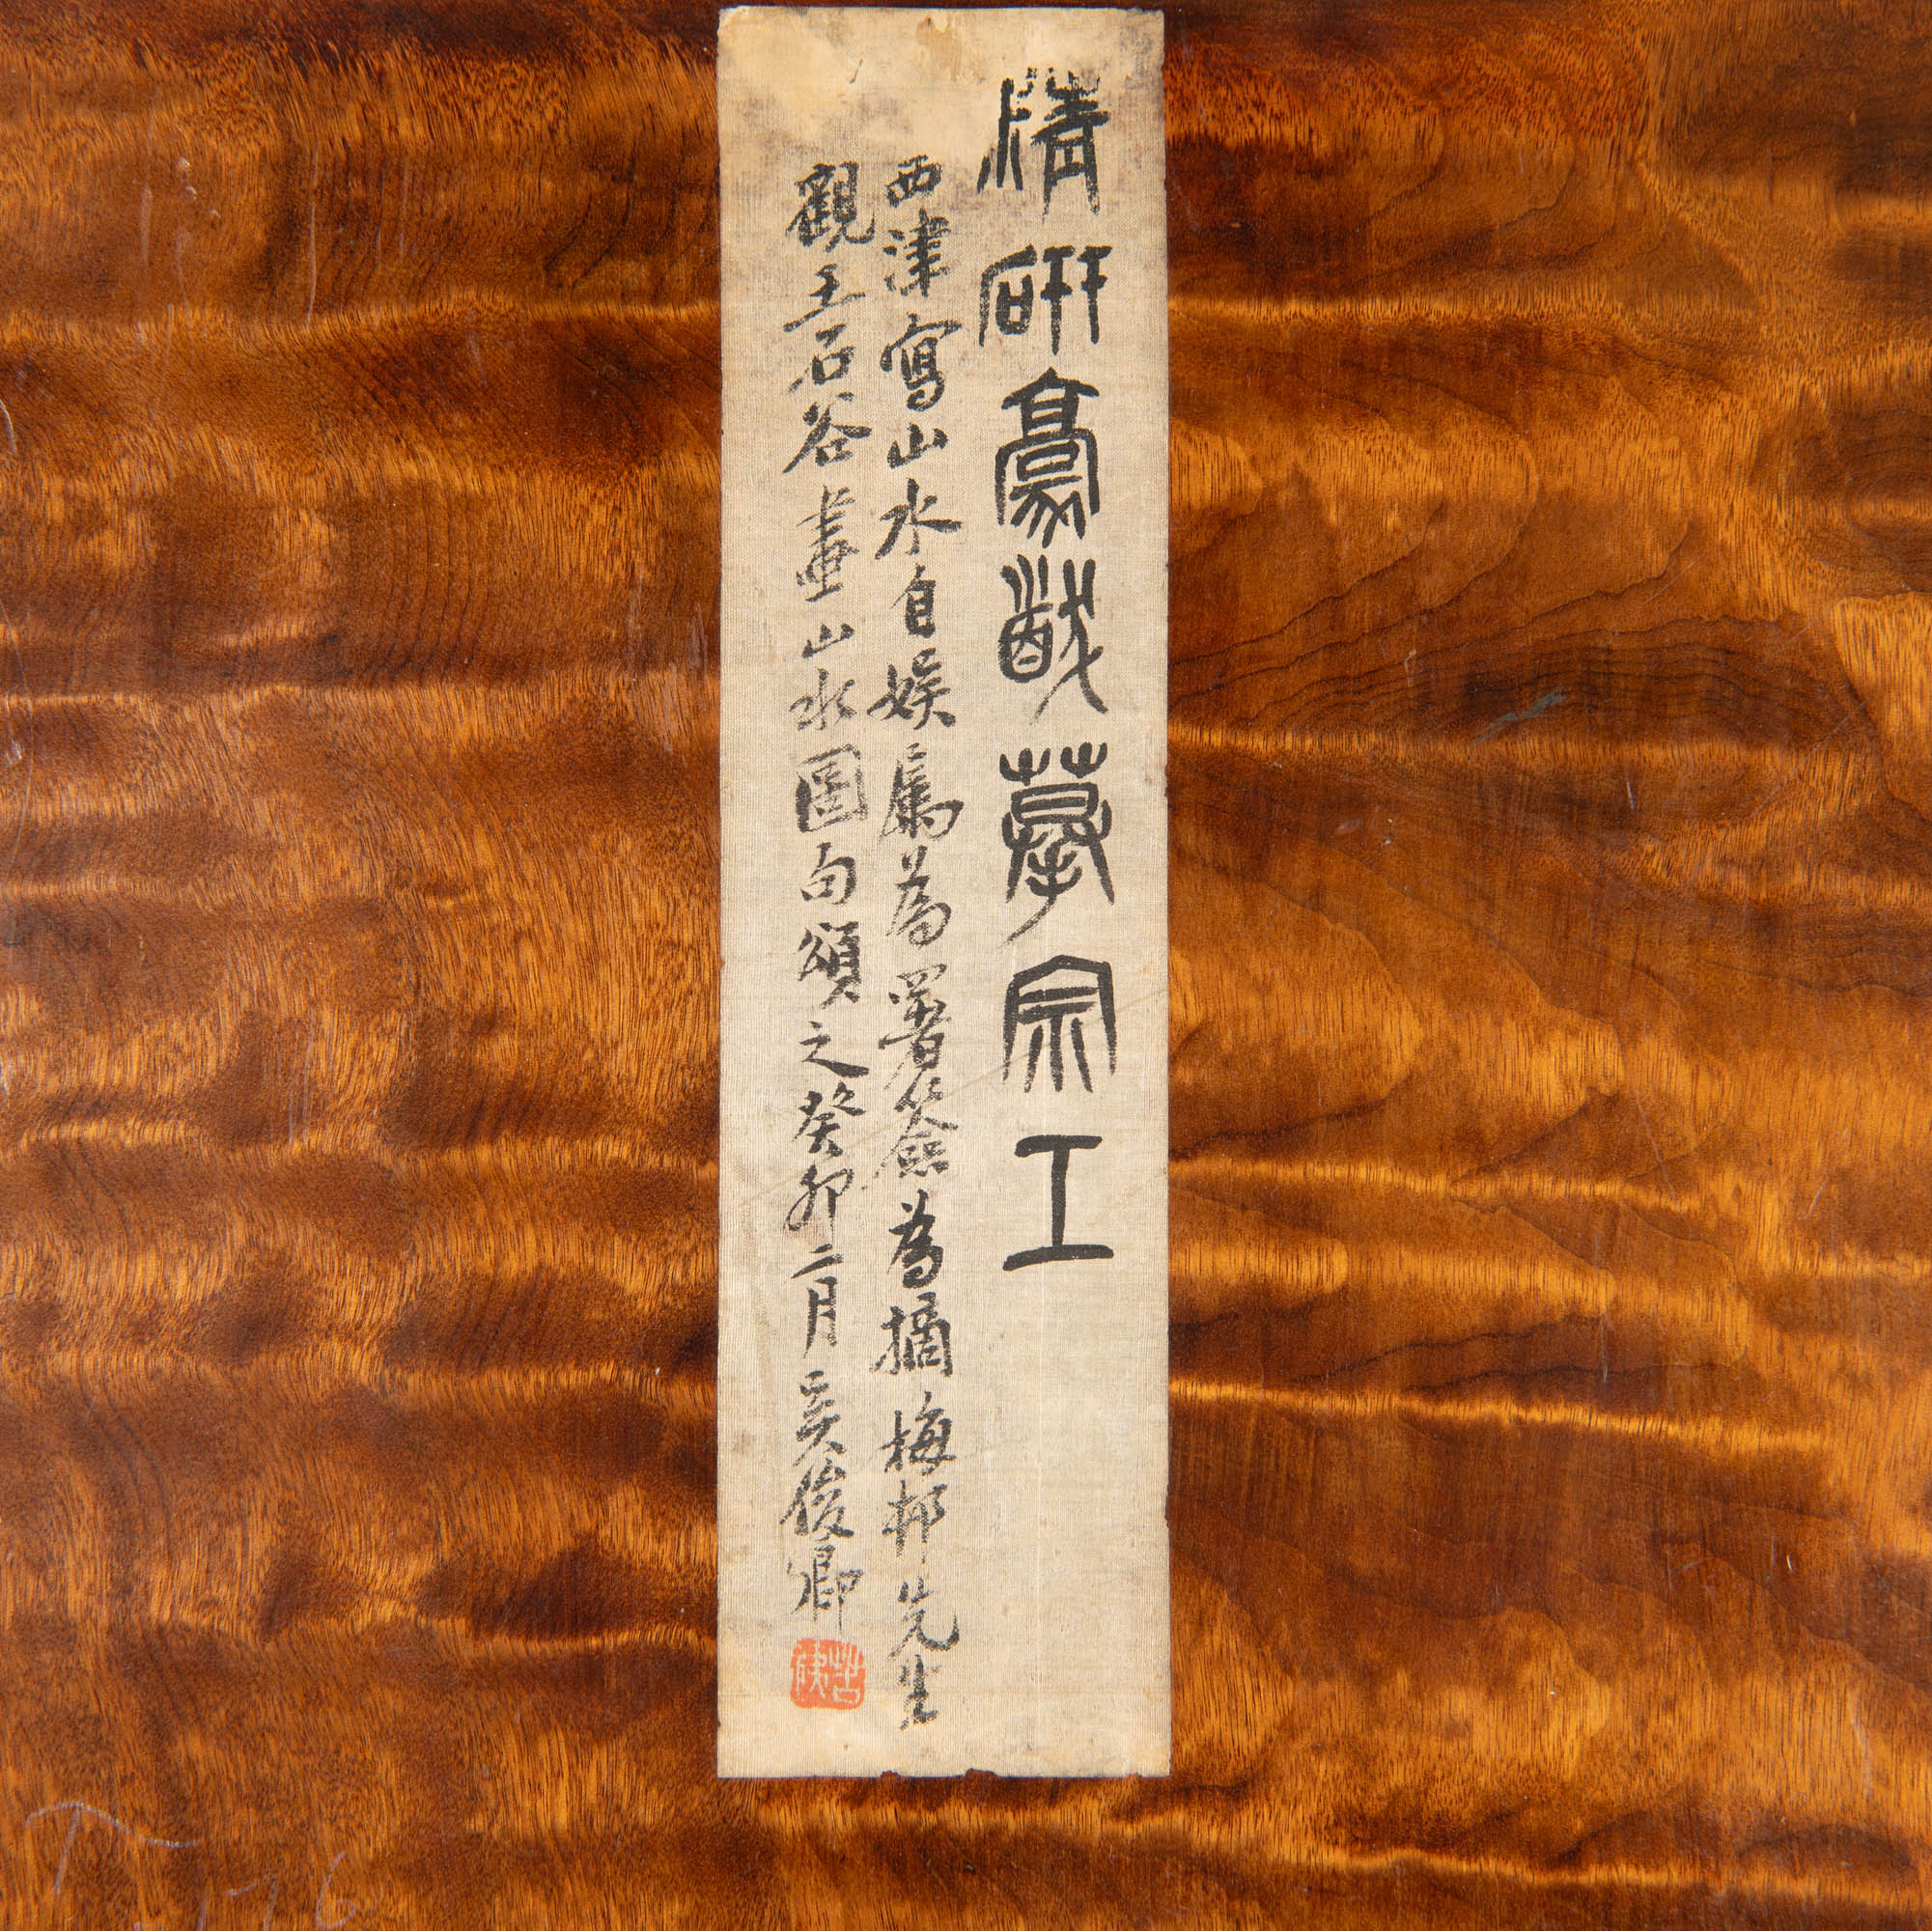 精研豪髮摹宗工
西津寫山水自娛屬為署簽為摘梅邨先生
觀王石谷畫山水圖句頌之癸卯二月吳俊卿